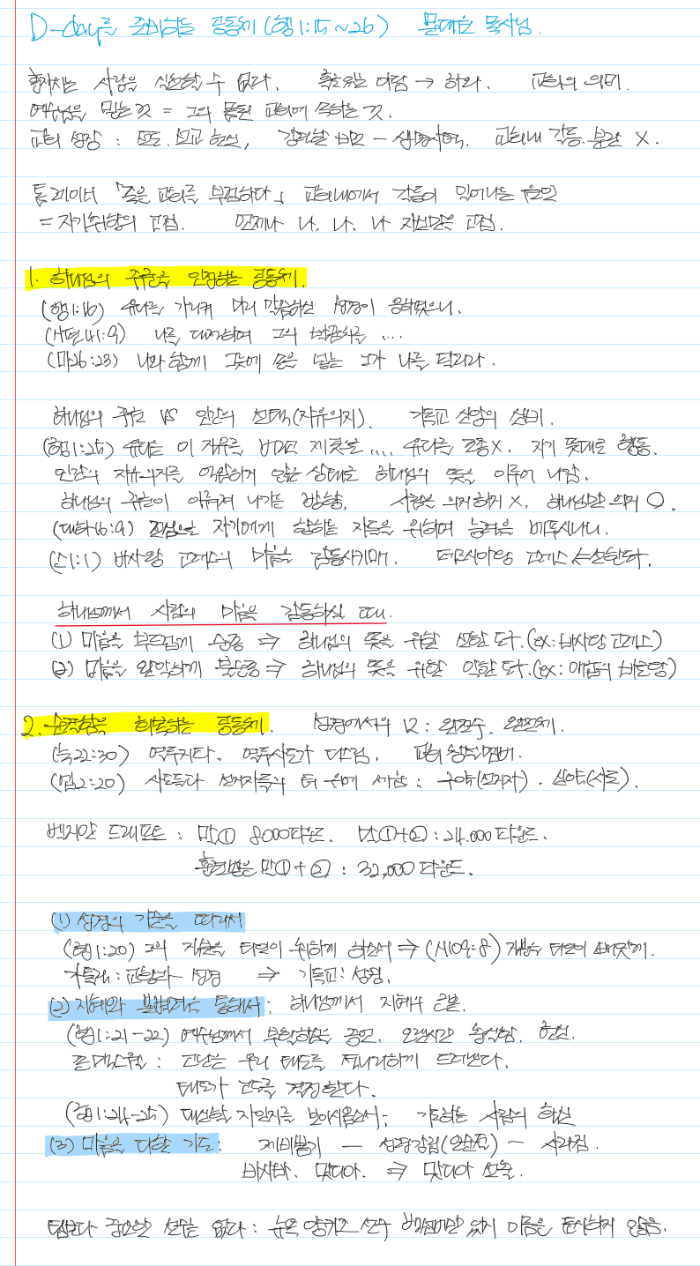 D-day를 준비하는 공동체 (행1:15~26) 목사님.
사람을 신뢰할 수 없다. → 하라. 교회의 의미.
예수님을 믿는 것 = 그의 몸된 교회에 속하는 것.
교회 성장 : 전도, 선교 헌신, 교회내 갈등.분란 X.
「좋은 교회를 부탁하다」 교회내에서 갈등이 일어나는 원인
= 자기취향의 고집. 언제나 나, 나, 나 자신만을 고집.
1. 하나님의 주권을 인정하는 공동체.
(행1:16) 유다를 가리켜 미리 말씀하신 성경이 응하였으니.
(시편41:9) 나를 대적하여 그의 발꿈치를 ...
(마26:23) 나와 함께 그릇에 손을 넣는 그가 나를 팔리라.
하나님의 주권 VS 인간의 선택(자유의지). 기독교 신앙의 신비.
(행1:25) 유다는 이 직무를 버리고 제 곳으로 .... 유다를 조종X. 자기 뜻대로 행동.
인간의 자유의지를 억압하지 않는 상태로 하나님의 뜻을 이루어 나감.
하나님의 주권이 이루어져 나가는 방향, 사람은 의지하기 X, 하나님만 의지 O.
(대하16:9) 전심으로 자기에게 향하는 자들을 위하여 능력을 베푸시나니.
(스1:1) 바사왕 고레스의 마음을 감동시키매. 페르시아왕 고레스
하나님께서 사람의 마음을 감동하실 때.
(1) 마음을 부드럽게 순종 ⇒ 하나님의 뜻을 위한 선한 도구. (ex: 바사왕 고레스)
(2) 마음을 완악하게 불순종 ⇒ 하나님의 뜻을 위한 악한 도구. (ex: 애굽의 바로왕)
2. 온전함을 회복하는 공동체. 성경에서의 12 : 완전수. 완전체.
(눅22:30) 열두지파. 열두사도가 다스림. 교회
(엡2:20) 사도들과 선지자들의 터 위에 세움 : 구약(선지자) . 신약(사도).
벤지안 드래프트 : 말① 8000파운드. 말①+② : 24.000파운드.
훈련받은 말①+② : 32,000파운드.
(1) 성경의 기준을 따라서
(행1:20) 그의 직분을 타인이 취하게 하소서 ⇒ (시109:8)
가톨릭 : 교황과 성경 ⇒ 기독교: 성경.
(2) 지혜와 분별력을 통해서 : 하나님께서 지혜의 근본.
(행1:21-22) 예수님께서 부활하심을 증언. 오랜시간 헌신.
존 맥스웰 : 고난은 우리 태도를 적나라하게 드러낸다.
태도가 고도를 결정한다.
(행1:24-25) 택하신바 되어 보이시옵소서; 기도하는 사람의 확신
(3) 마음을 다한 기도: 제비뽑기 - 성령강림(오순절) - 사라짐.
바사바. 맛디아. ⇒ 맛디아 선출.
팀보다 중요한 선수는 없다 : 뉴욕 양키즈 선수 등번호만 있지 이름은 표시하지 않음.